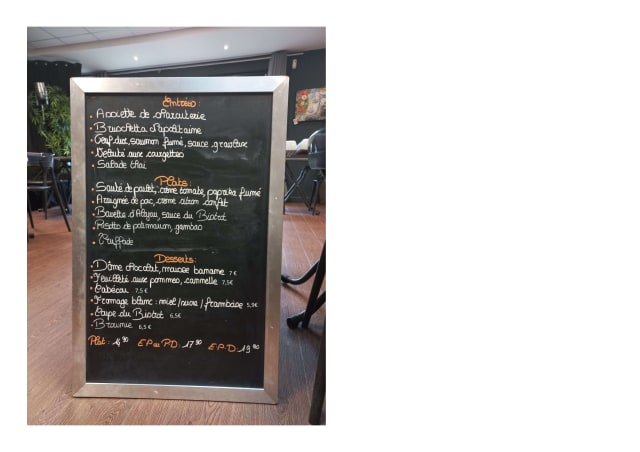 Entrées :
• Assiette de charcuterie
• Bruschetta Napolitaine
• Oeuf dur, saumon fumé, sauce gravlax
• Velouté aux courgettes
• Salade thaï
Plats :
• Sauté de poulet, crème tomate, paprika fumé
• Araignée de porc, crème citron confit
• Bavette d'Aloyau, sauce du Bistrot
• Risotto de potimarron, gambas
• Truffade
Desserts :
• Dôme chocolat, mousse banane 7€
• Feuilleté aux pommes, cannelle 7,5€
• Cabécou 7,5€
• Fromage blanc : miel/sucre/framboise 5,5€
• Coupe du Bistrot 6,5€
• Brownie 6,5€
Plat : 14,90 EP ou PD : 17,90 E.P.D : 19,90